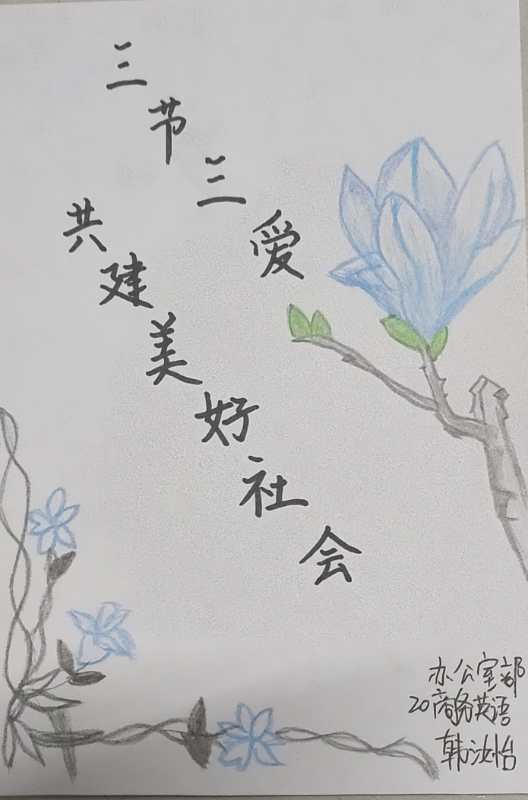 三节三爱
共建美好社会
办公室部
20商务英语
韩汝怡